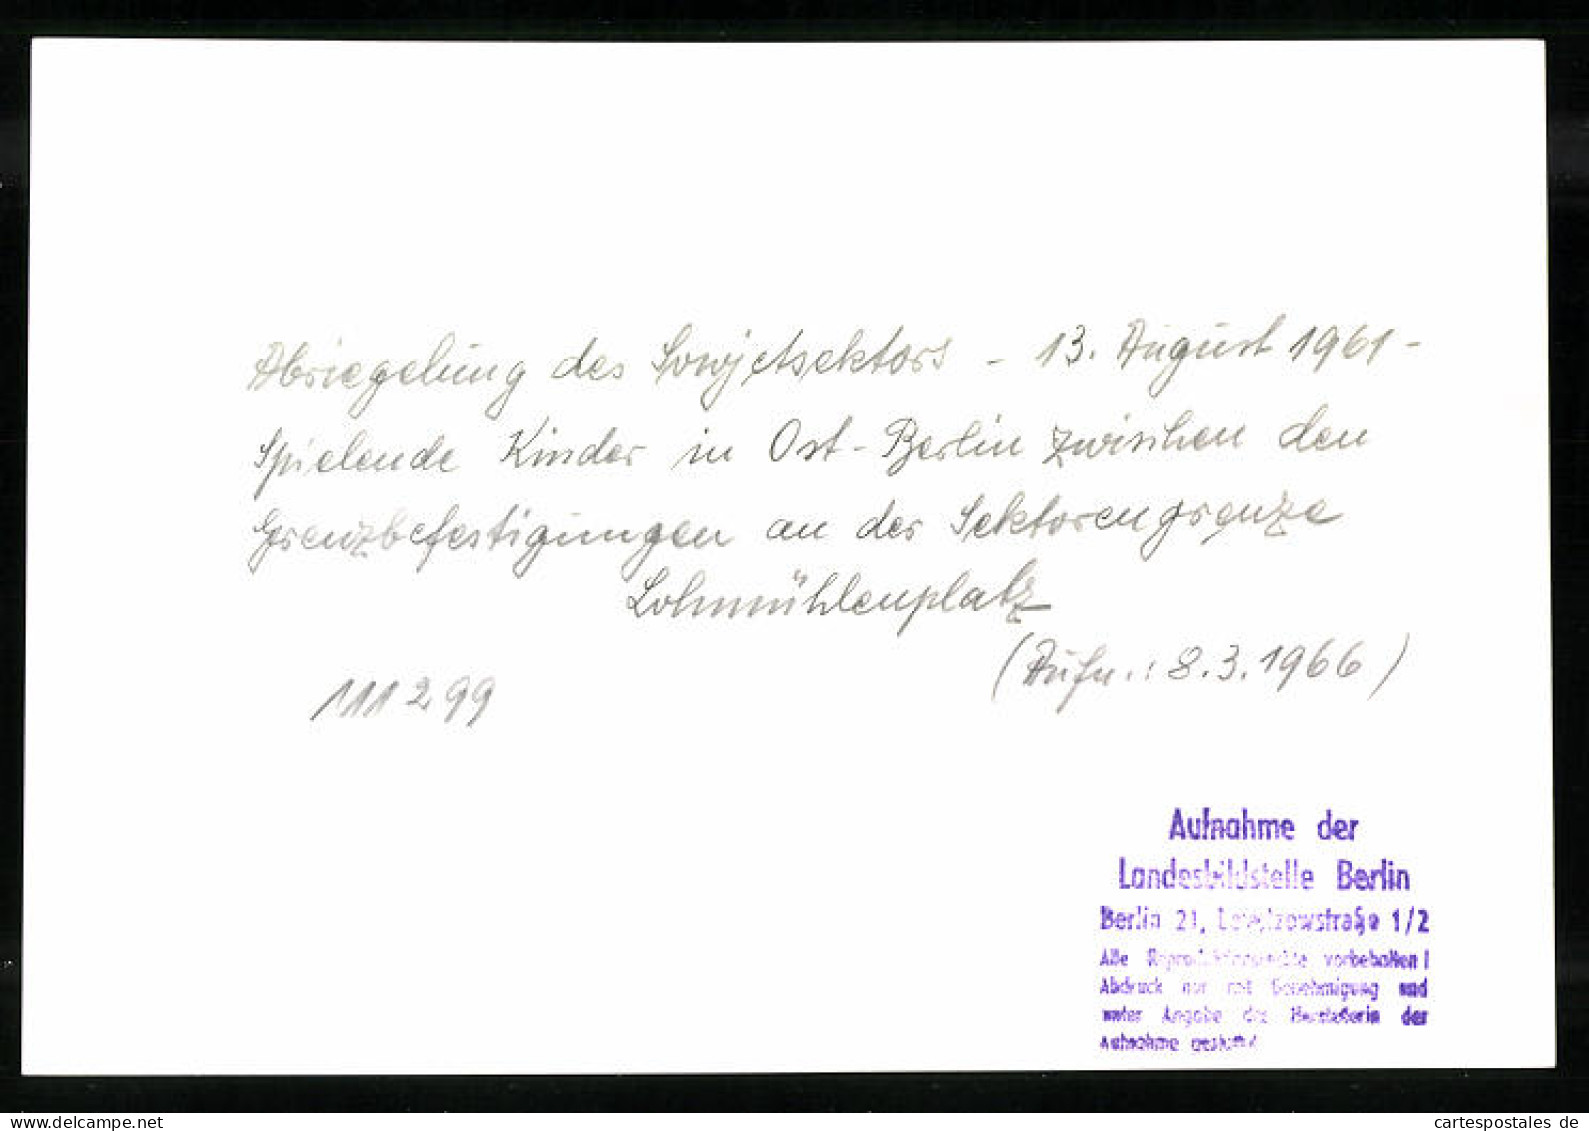 Abriegelung des Sowjetsektors - 13. August 1961 -
Spielende Kinder in Ost-Berlin zwischen den
Grenzbefestigungen an der Sektorengrenze
Lohmühlenplatz
(Aufn.: 8.3.1966)
111299
Aufnahme der
Landesbildstelle Berlin
Berlin 21, Levetzowstraße 1/2
Alle Reproduktionsrechte vorbehalten!
Abdruck nur mit Genehmigung und
unter Angabe der Herstellerin der
Aufnahme gestattet
cartespostales.de